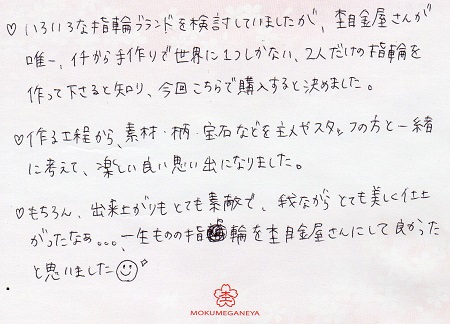 ♡いろいろな指輪ブランドを検討していましたが、杢目金屋さんが
唯一、イチから手作りで世界に1つしかない、2人だけの指輪を
作って下さると知り、今回こちらで購入すると決めました。
♡作る工程から、素材・柄・宝石などを主人やスタッフの方と一緒
に考えて、楽しい良い思い出になりました。
♡もちろん、出来上がりもとても素敵で、我ながらとても美しく仕上
がったなぁ…、一生ものの指輪を杢目金屋さんにして良かった
と思いました
MOKUMEGANEYA